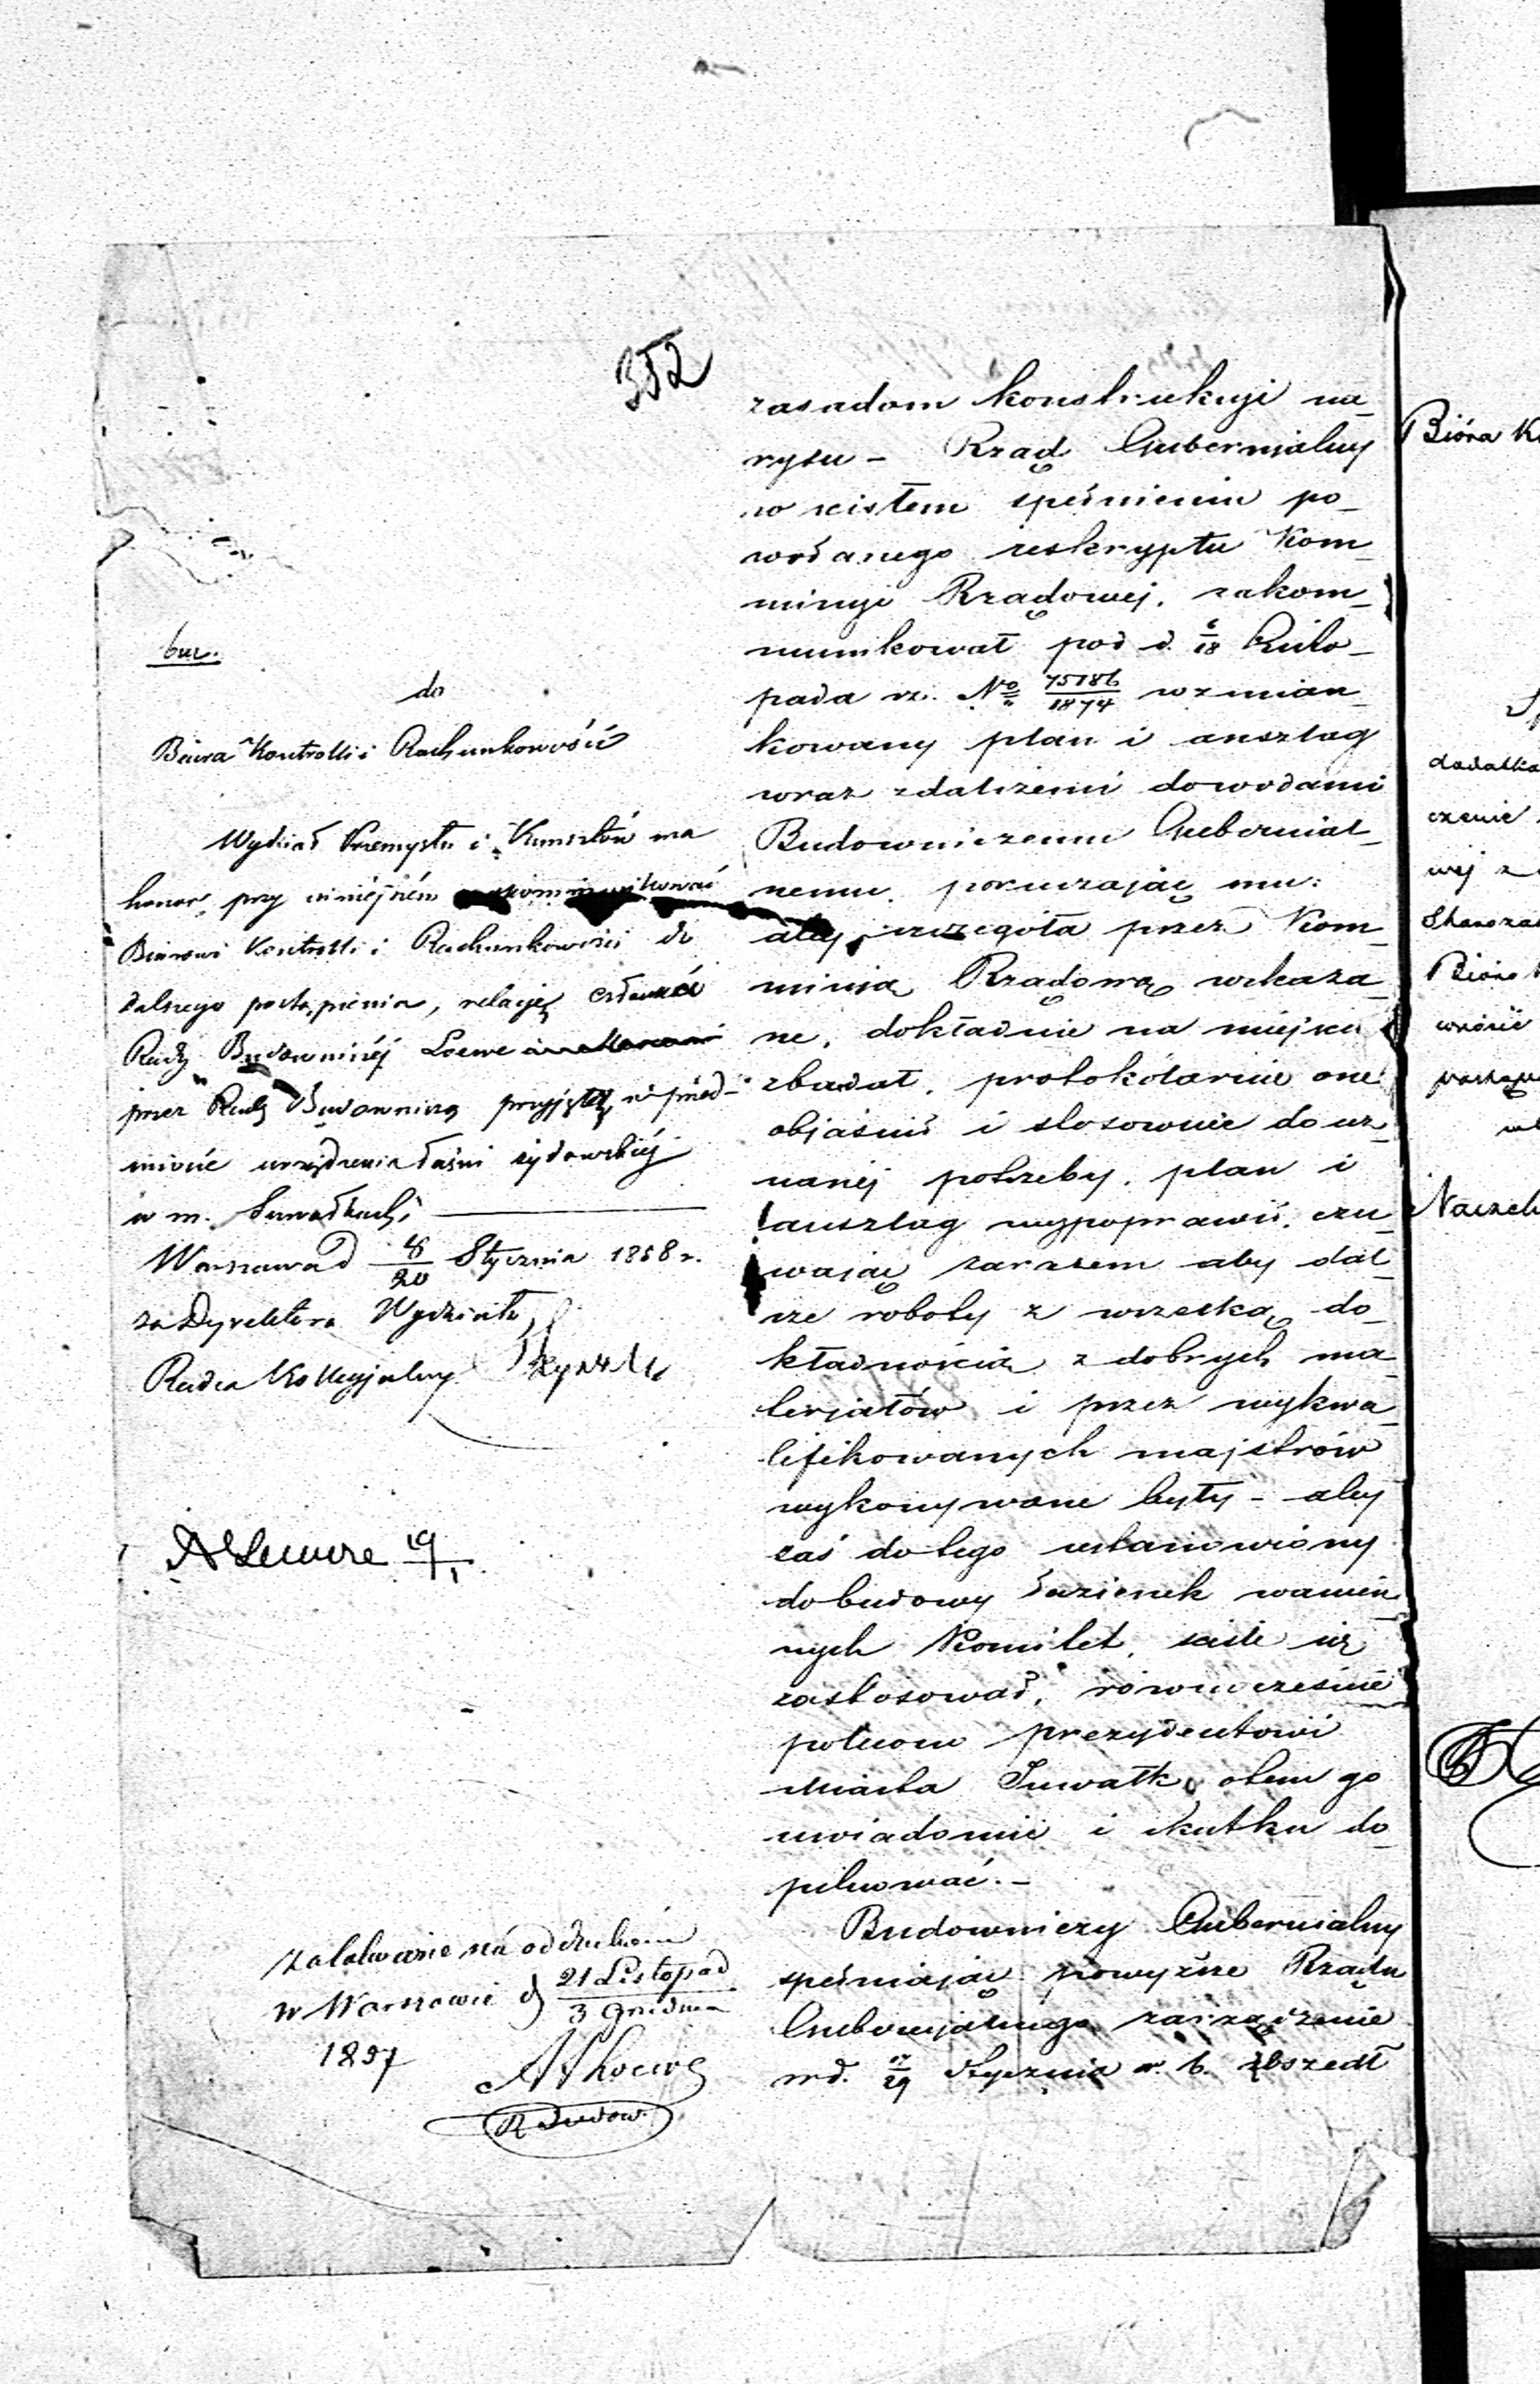 352
bur.
do
Biura Kontrolli i Rachunkowości
Wydział Przemysłu i Kunsztów ma
honor, przy niniejszém zakommunikować
Biurowi Kontrolli i Rachunkowości do
dalszego postąpienia, relacyę członka
Rady Budowniczéj Loewe
przez Radę Budowniczą przyjętą, w przed-
miocie urządzenia łaźni żydowskiéj
w m. Suwałkach,
Warszawa d 8/20 Stycznia 1858 r.
za Dyrektora Wydziału,
Radca Kollegjalny
19/1
Załatwienie na oddzielném
w Warszawie d 21 Listopad / 3 Grudnia
1857
AJLoewe
R Budow.
zasadom konstrukcji na-
rysu – Rząd Gubernialny
w ścisłem spełnieniu po-
wołanego reskryptu Kom-
missyi Rządowej, zakom-
munikował pod d. 6/18 Listo-
pada rz. No 75786/1874 wzmian-
kowany plan i anszlag
wraz z dalszemi dowodami
Budowniczemu Gubernial-
nemu, poruczając mu:
aby szczegóła przez Kom-
missią Rządową wskaza-
ne, dokładnie na miejscu
zbadał, protokólarnie one
objaśnił i stosownie do uz-
nanéj potrzeby, plan i
anszlag wypoprawił, czu-
wając zarazem aby dal-
sze roboty z wszelką do-
kładnością z dobrych ma-
terjałów i przez wykwa-
lifikowanych majstrów
wykonywane były – aby
zaś do tego ustanowiony
do budowy łazienek wanien-
nych Komitet, ściśle się
zastosował, równocześnie
polecono prezydentowi
Miasta Suwałk, o tem go
uwiadomić i skutku do-
pilnować. –
Budowniczy Gubernialny
spełniając powyższe Rządu
Gubernjalnego zarządzenie
w d. 17/29 Stycznia r. b. zszedł
Bióra K
dodatko
czenie
wéj z
Skarza
Bióro
wrócić
postąpi
Naczel